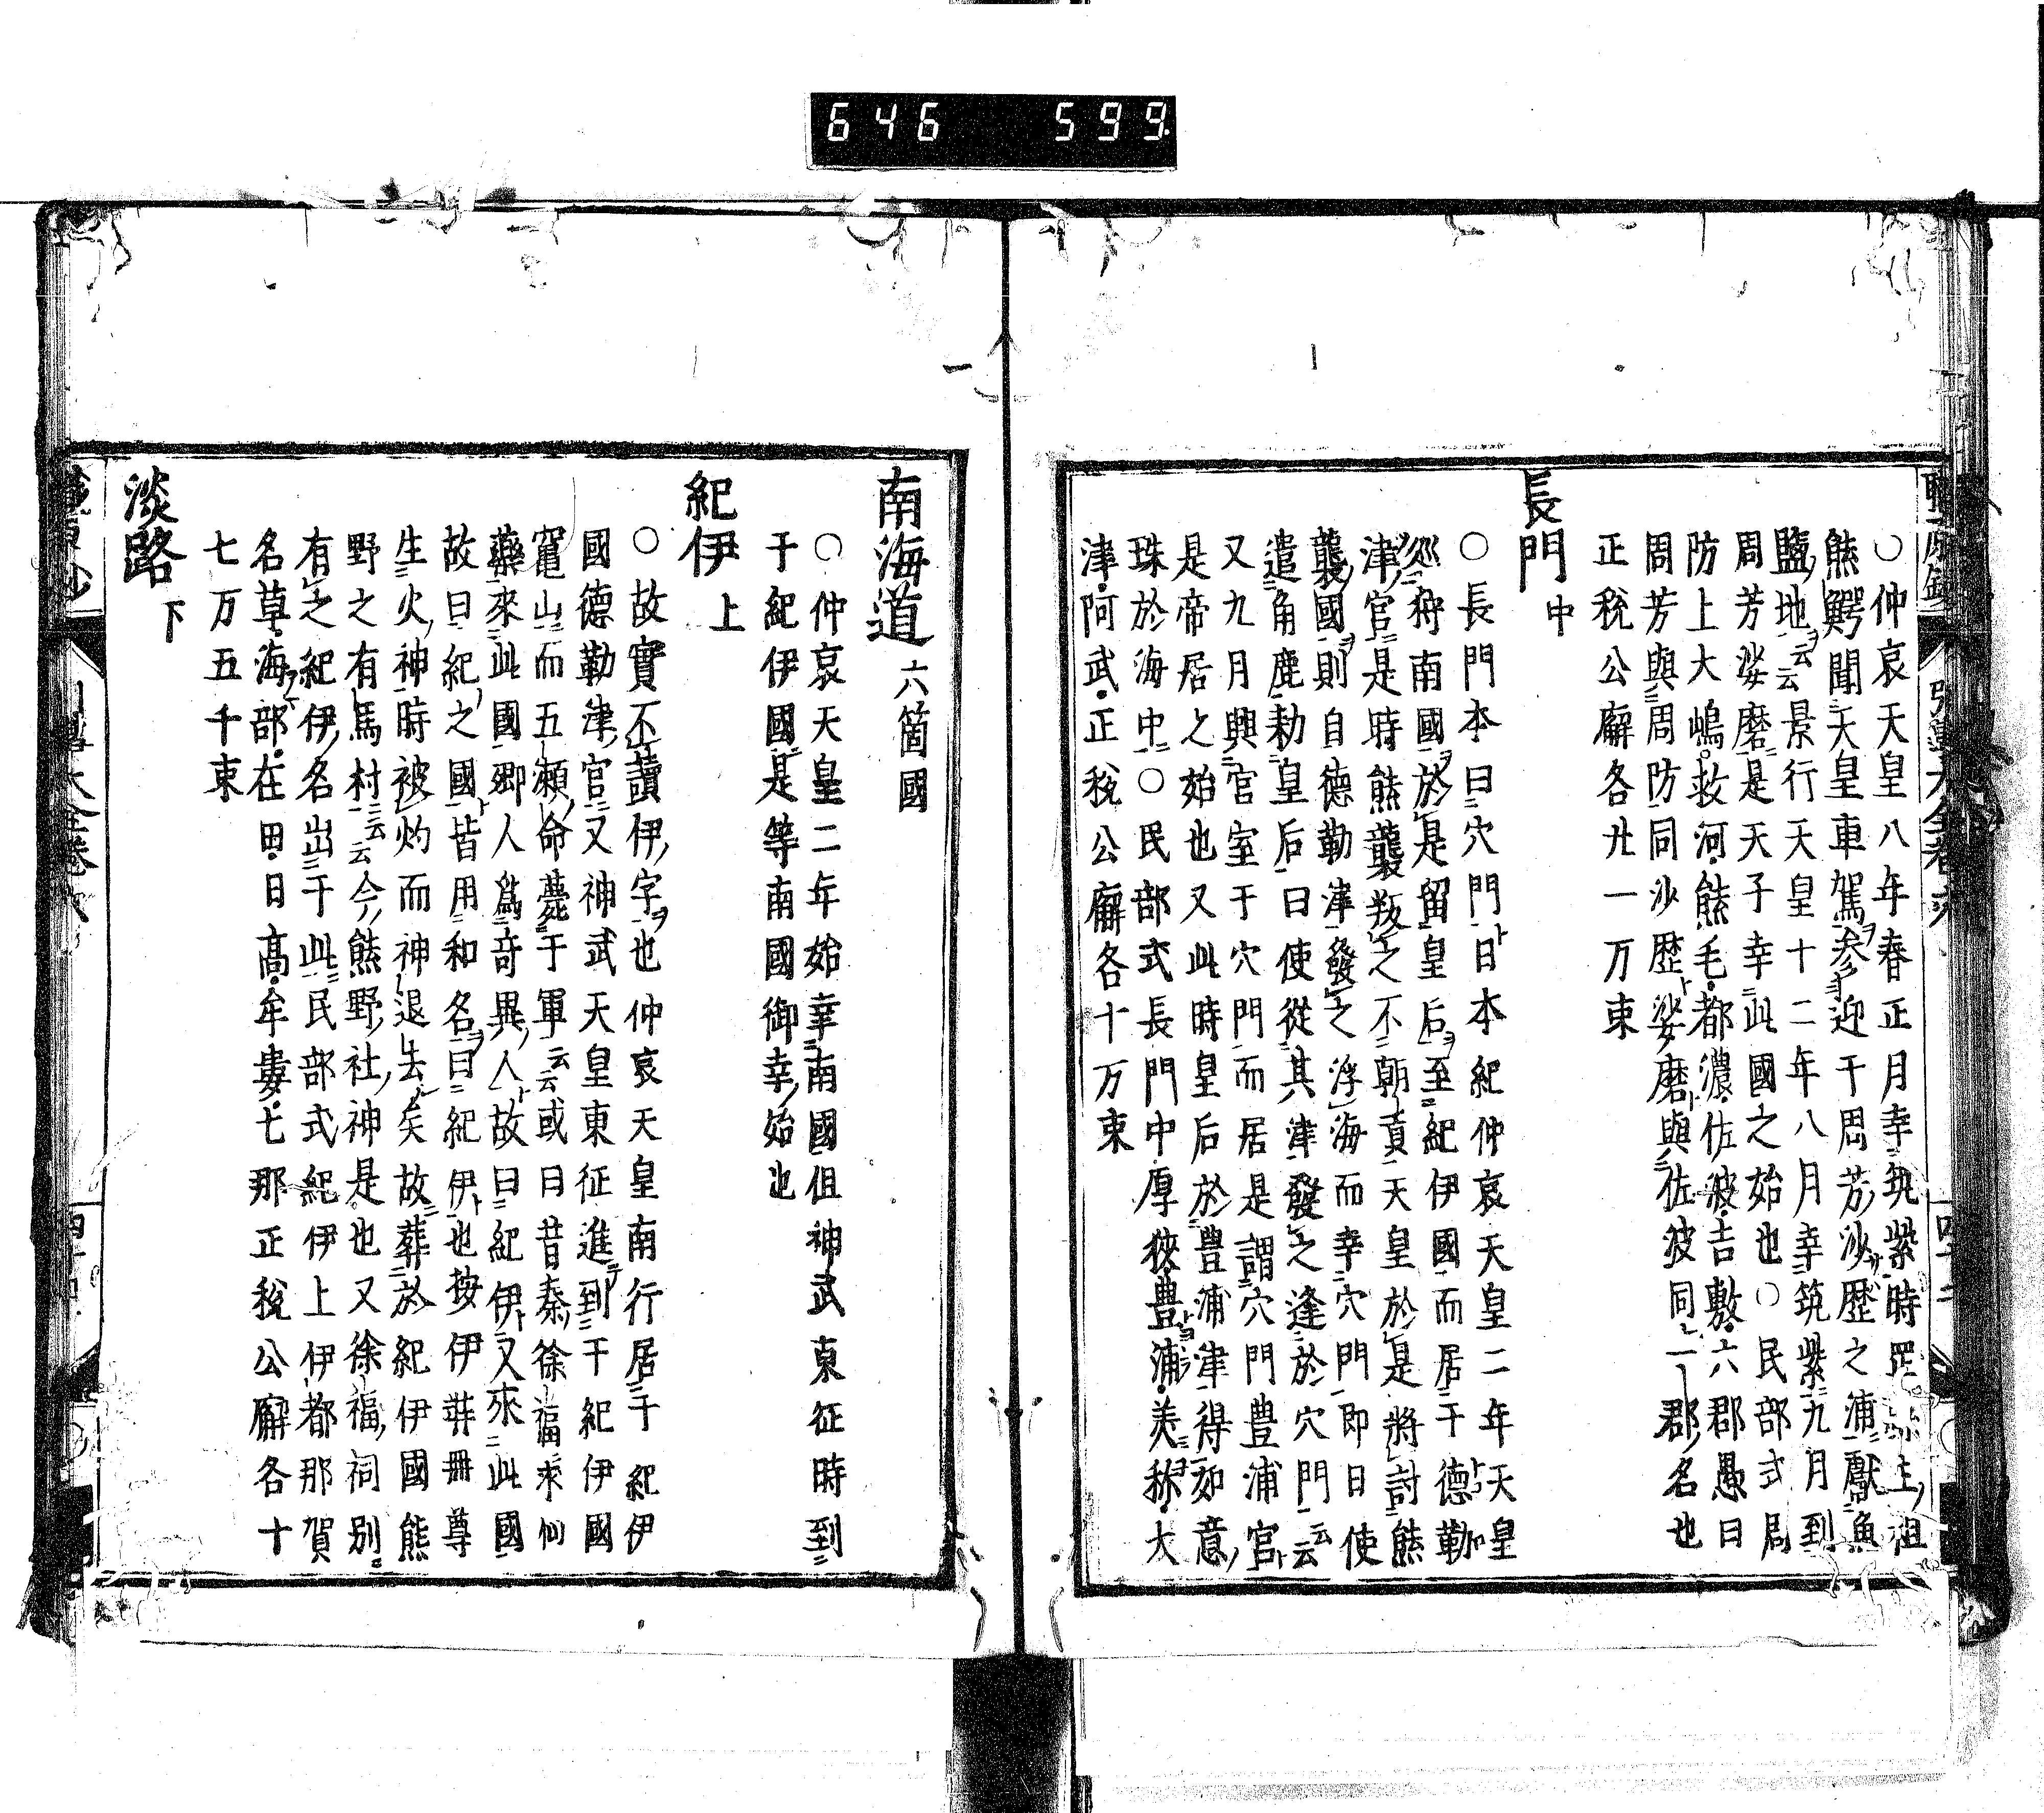 646 599
○仲哀天皇八年春正月幸筑紫時罡縣主祖
熊鰐聞天皇車駕參迎于周芳沙歴之浦獻魚
鹽地云云景行天皇十二年八月幸筑紫九月到
周芳娑磨是天子幸此國之始也○民部式周
防上大嶋玖河熊毛都濃佐波吉敷六郡愚曰
周芳與周防同沙歴娑磨與佐波同一郡名也
正稅公廨各廾一万束
長門中
○長門本曰穴門日本紀仲哀天皇二年天皇
巡狩南國於是留皇后至紀伊國而居于德勒
津宮是時熊襲叛之不朝貢天皇於是將討熊
襲國則自德勒津發之浮海而幸穴門即日使
遣角鹿勅皇后曰使從其津發之逢於穴門云云
又九月興宮室于穴門而居是謂穴門豊浦宮
是帝居之始也又此時皇后於豊浦津得如意
珠於海中○民部式長門中厚狹豊浦美祢大
津阿武正稅公廨各十万束
南海道六箇國
○仲哀天皇二年始幸南國但神武東征時到
于紀伊國是等南國御幸始也
紀伊上
○故實不讀伊字也仲哀天皇南行居于紀伊
國德勒津宮又神武天皇東征進到于紀伊國
竃山而五瀬命薨于軍云云或曰昔秦徐福來仙
藥來此國鄉人爲竒異人故曰紀伊又來此國
故曰紀之國皆用和名曰紀伊也按伊弉冊尊
生火神時被灼而神退去矣故葬於紀伊國熊
野之有馬村云云今熊野社神是也又徐福祠別
有之紀伊名出于此民部式紀伊上伊都那賀
名草海部在田日高牟婁七那正稅公廨各十
七万五千束
淡路下